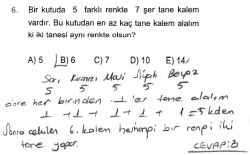 6. Bir kutuda 5 farklı renkte 7 şer tane kalem
vardır. Bu kutudan en az kaç tane kalem alalım
ki iki tanesi aynı renkte olsun?
A) 5 B) 6 C) 7 D) 10 E) 14
Sarı Kırmızı Mavi Siyah Beyaz
5 5 5 5 5
önce her birinden 1'er tane alalım
1 + 1 + 1 + 1 + 1 = 5
Sonra çekilen 6. kalem herhangi bir rengi iki
tane yapar.
CEVAP: B